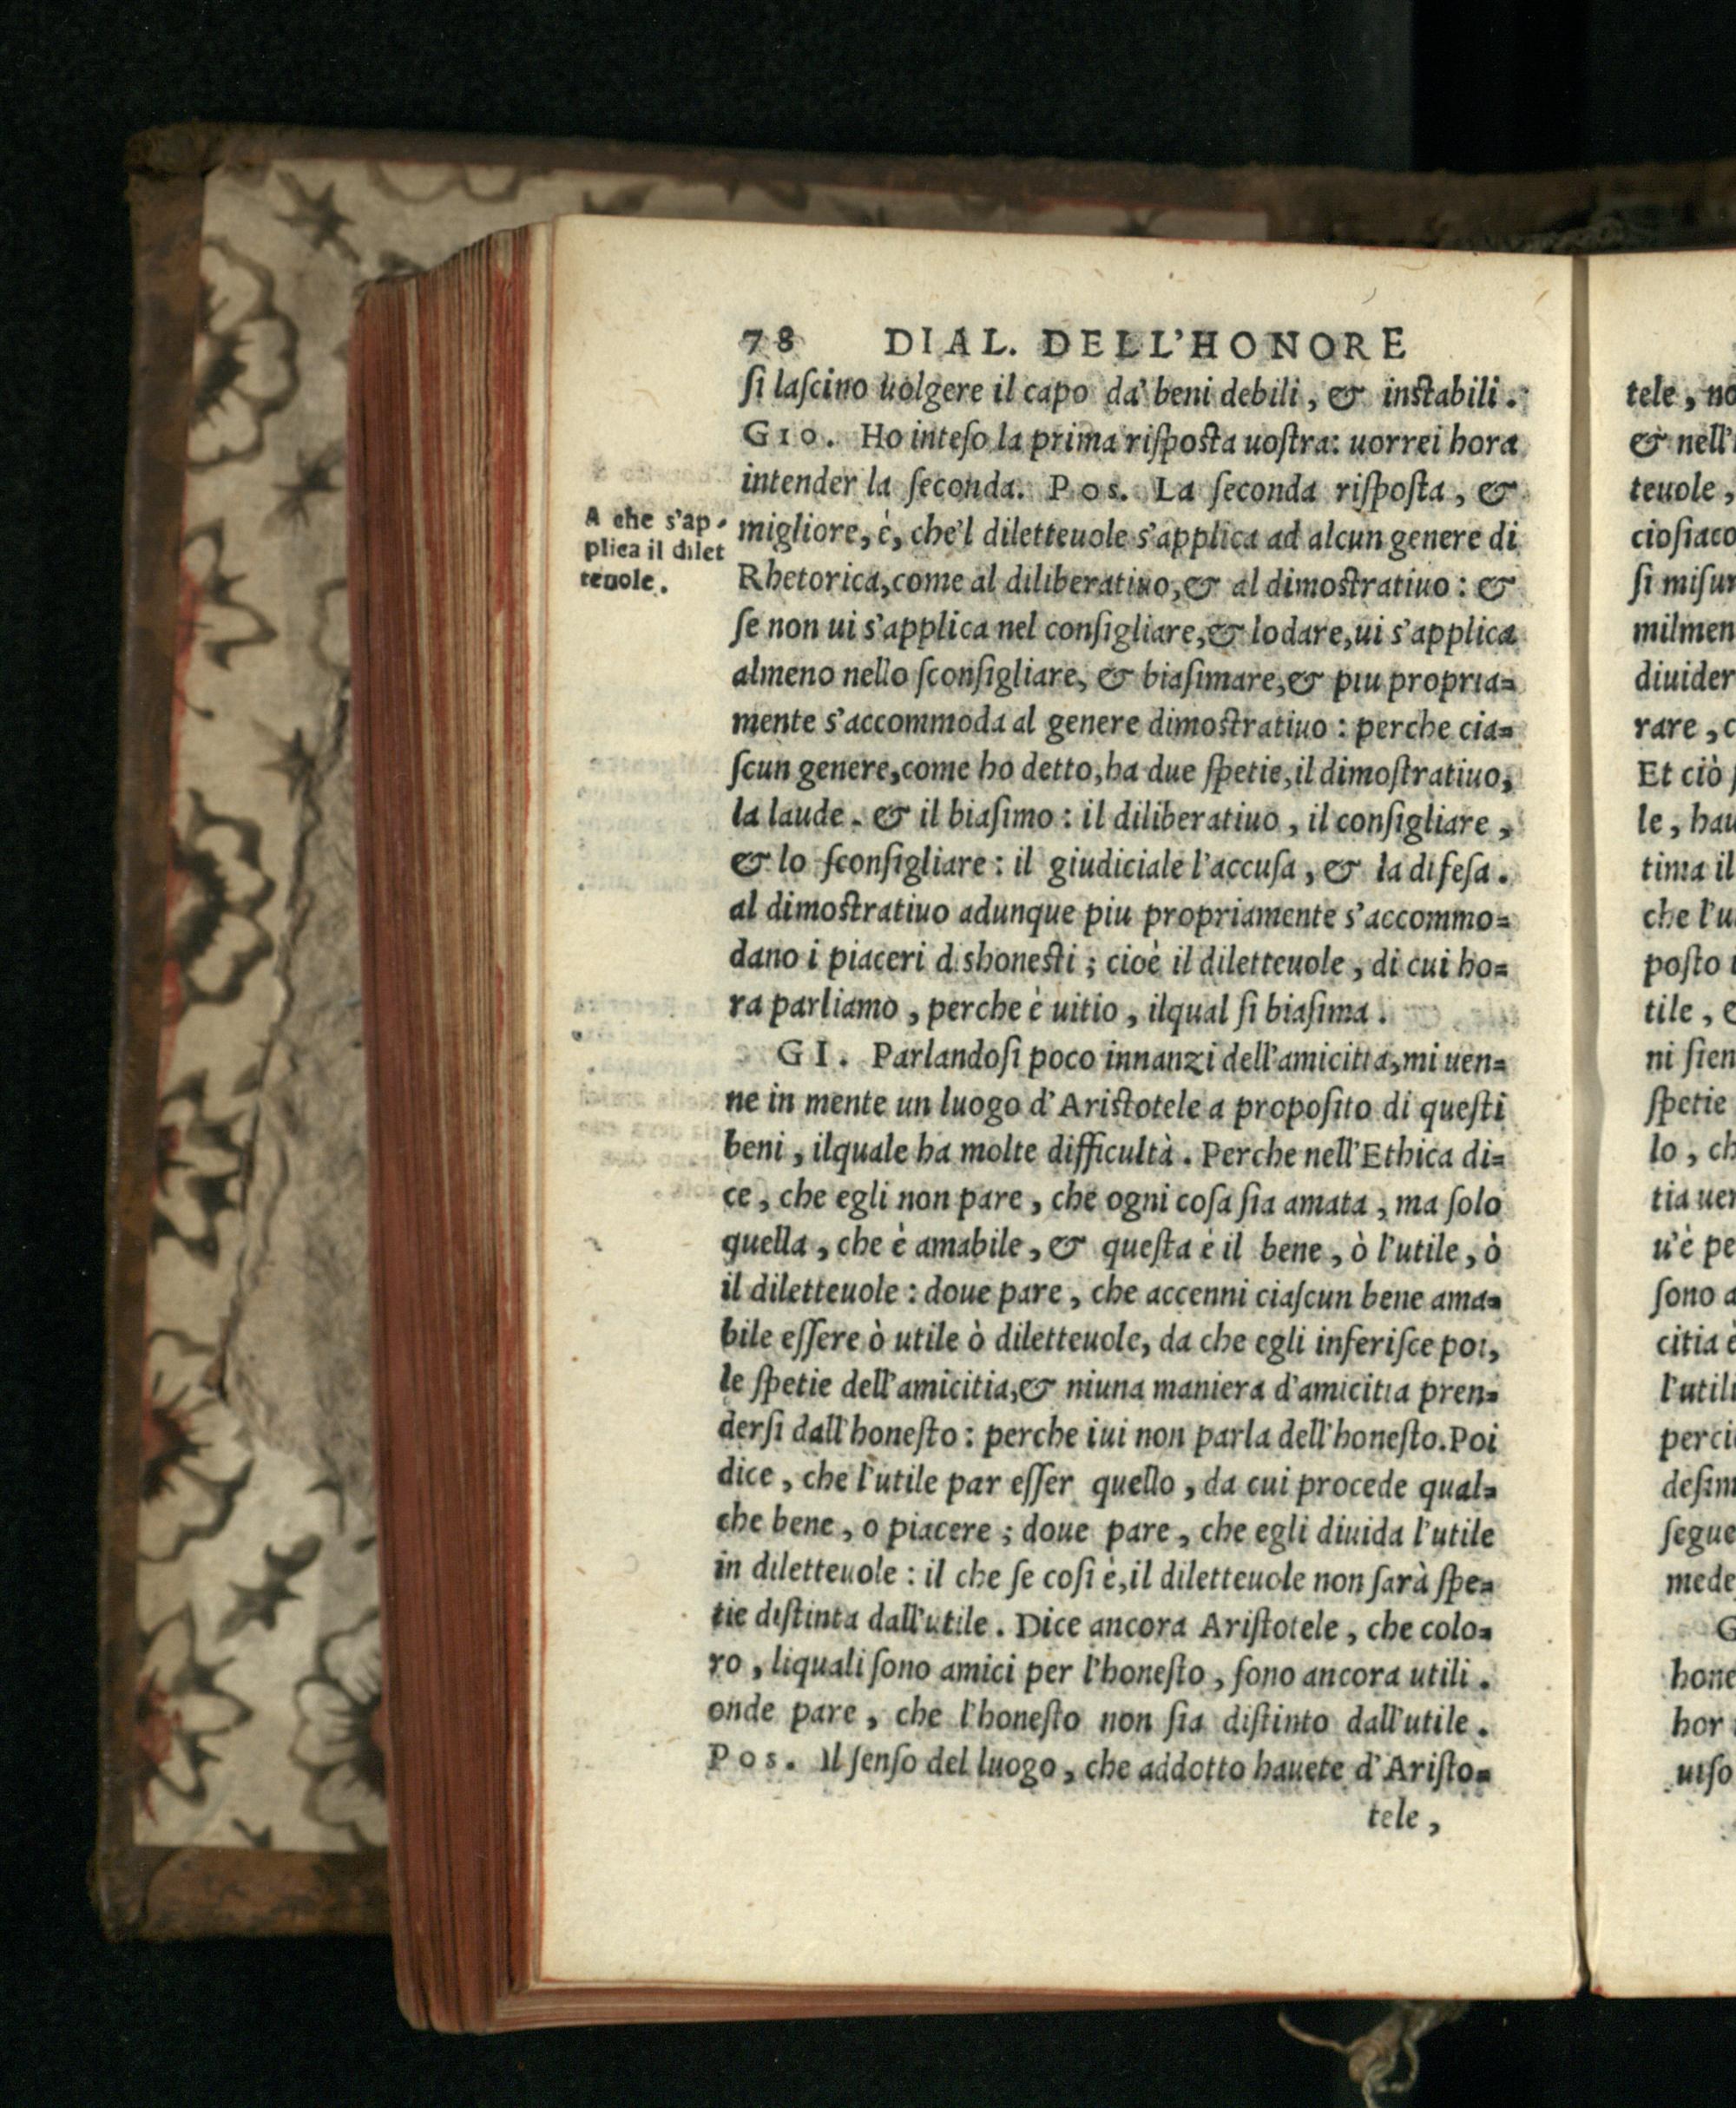 78 DIAL. DELL'HONORE
ſi laſcino uolgere il capo da' beni debili, & inſtabili.
GIO. Ho inteſo la prima riſpoſta uoſtra: uorrei hora
intender la ſeconda. Pos. La ſeconda riſpoſta, &
migliore, è, che'l diletteuole s'applica ad alcun genere di
Rhetorica, come al diliberatiuo, & al dimoſtratiuo: &
ſe non ui s'applica nel conſigliare, & lodare, ui s'applica
almeno nello ſconſigliare, & biaſimare, & piu propria=
mente s'accommoda al genere dimoſtratiuo: perche cia=
ſcun genere, come ho detto, ha due ſpetie, il dimoſtratiuo,
la laude. & il biaſimo: il diliberatiuo, il conſigliare,
& lo ſconſigliare: il giudiciale l'accuſa, & la difeſa.
al dimoſtratiuo adunque piu propriamente s'accommo=
dano i piaceri d.shoneſti; cioè il diletteuole, di cui ho=
ra parliamo, perche è uitio, ilqual ſi biaſima.
GI. Parlandoſi poco innanzi dell'amicitia, mi uen=
ne in mente un luogo d'Ariſtotele a propoſito di queſti
beni, ilquale ha molte difficultà. Perche nell'Ethica di=
ce, che egli non pare, che ogni coſa ſia amata, ma ſolo
quella, che è amabile, & queſta è il bene, ò l'utile, ò
il diletteuole: doue pare, che accenni ciaſcun bene ama=
bile eſſere ò utile ò diletteuole, da che egli inferiſce poi,
le ſpetie dell'amicitia, & niuna maniera d'amicitia pren=
derſi dall'honeſto: perche iui non parla dell'honeſto. Poi
dice, che l'utile par eſſer quello, da cui procede qual=
che bene, o piacere; doue pare, che egli diuida l'utile
in diletteuole: il che ſe coſi è, il diletteuole non ſarà ſpe=
tie diſtinta dall'utile. Dice ancora Ariſtotele, che colo=
ro, liquali ſono amici per l'honeſto, ſono ancora utili.
onde pare, che l'honeſto non ſia diſtinto dall'utile.
Pos. Il ſenſo del luogo, che addotto hauete d'Ariſto=
tele,
A che s'ap-
plica il dilet
teuole.
tele, no
& nell'
teuole,
cioſiaco
ſi miſur
milmen
diuider
rare, c
Et ciò
le, hau
tima il
che l'u
poſto
tile, &
ni ſien
ſpetie
lo, ch
tia uer
u'è pe
ſono a
citia è
l'utili
perci
deſim
ſegue
mede
G
hone
hor
uiſo